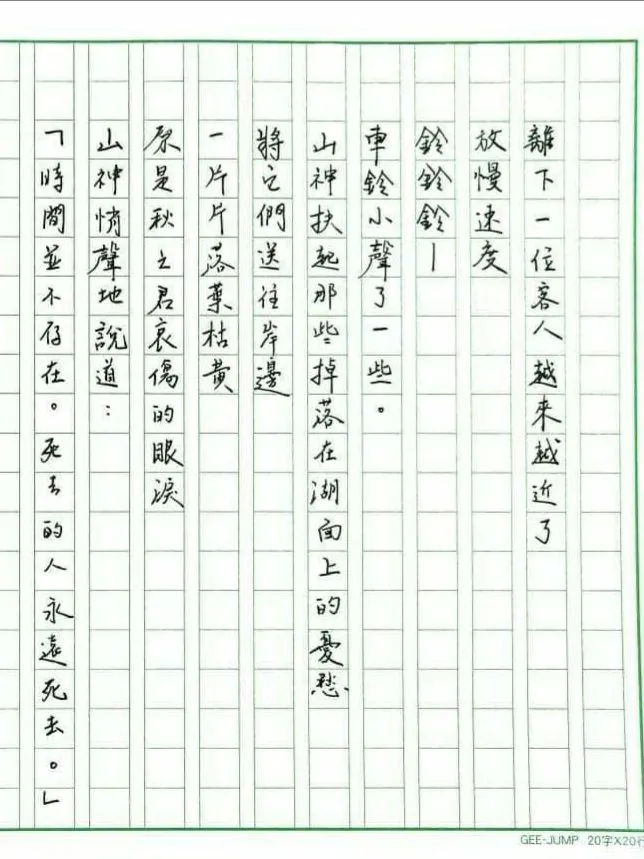 離下一位客人越來越近了
放慢速度
鈴鈴鈴—
車鈴小聲了一些。
山神扶起那些掉落在湖面上的憂愁
將它們送往岸邊
一片片落葉枯黃
原是秋之君哀傷的眼淚
山神悄聲地說道：
「時間並不存在。死去的人永遠死去。」
GEE-JUMP 20字X20行